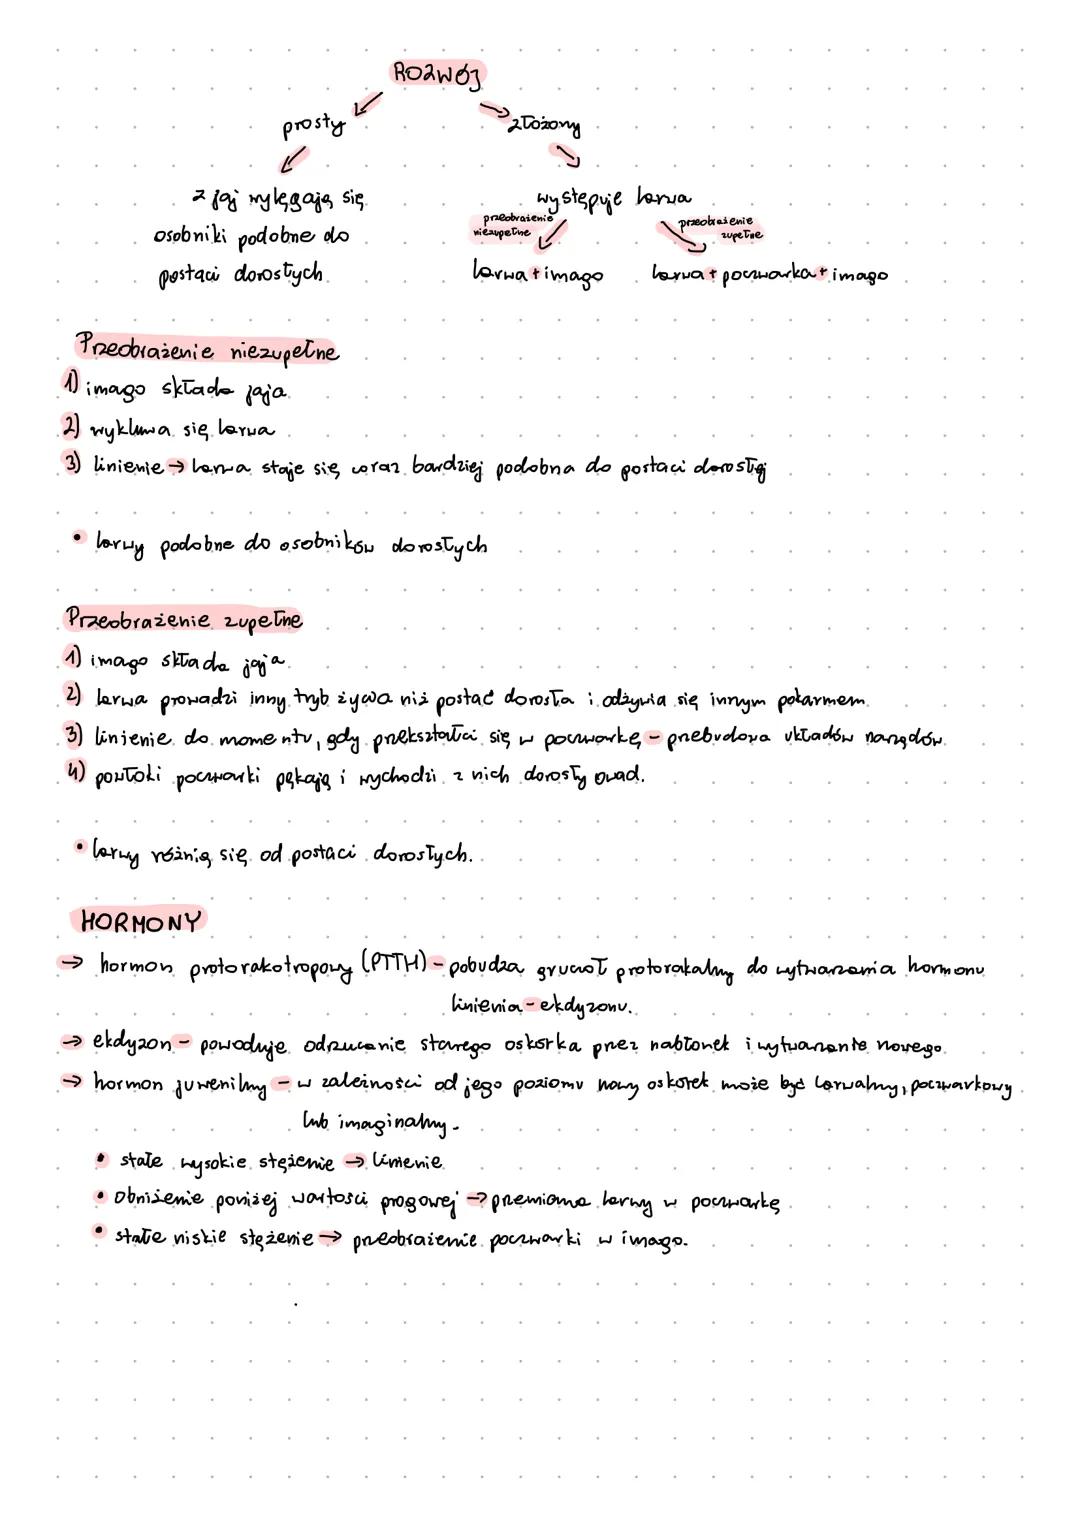 ROZWÓJ
prosty
złożony
z jaj wylęgają się
osobniki podobne do
postaci dorosłych.
występuje larwa
przeobrażenie
niezupełne
przeobrażenie
zupełne
larwa + imago
larwa + poczwarka + imago
Przeobrażenie niezupełne
1) imago składa jaja.
2) wykluwa się larwa
3) linienie → larwa staje się coraz bardziej podobna do postaci dorosłej
• larwy podobne do osobników dorosłych
Przeobrażenie zupełne
1) imago składa jaja.
2) larwa prowadzi inny tryb życia niż postać dorosła i odżywia się innym pokarmem.
3) linienie do momentu, gdy przekształci się w poczwarkę - przebudowa układów narządów.
4) powłoki poczwarki pękają i wychodzi z nich dorosły owad.
• larwy różnią się od postaci dorosłych.
HORMONY
→ hormon protorakotropowy (PTTH) - pobudza gruczoł protorakalny do wytwarzania hormonu
linienia - ekdyzonu.
→ ekdyzon - powoduje odrzucenie starego oskórka przez nabłonek i wytwarzanie nowego.
→ hormon juwenilny - w zależności od jego poziomu nowy oskórek może być larwalny, poczwarkowy
lub imaginalny.
• stałe wysokie stężenie → linienie
• obniżenie poniżej wartości progowej → przemiana larwy w poczwarkę
• stałe niskie stężenie → przeobrażenie poczwarki w imago.